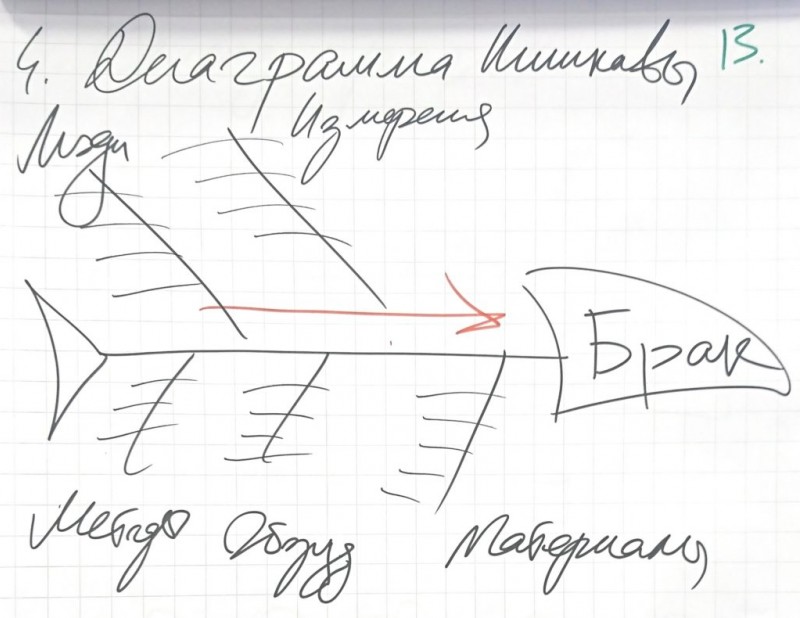 4. Диаграмма Ишикавы 13.
Люди Измерения
Брак
Метод Оборуд Материалы